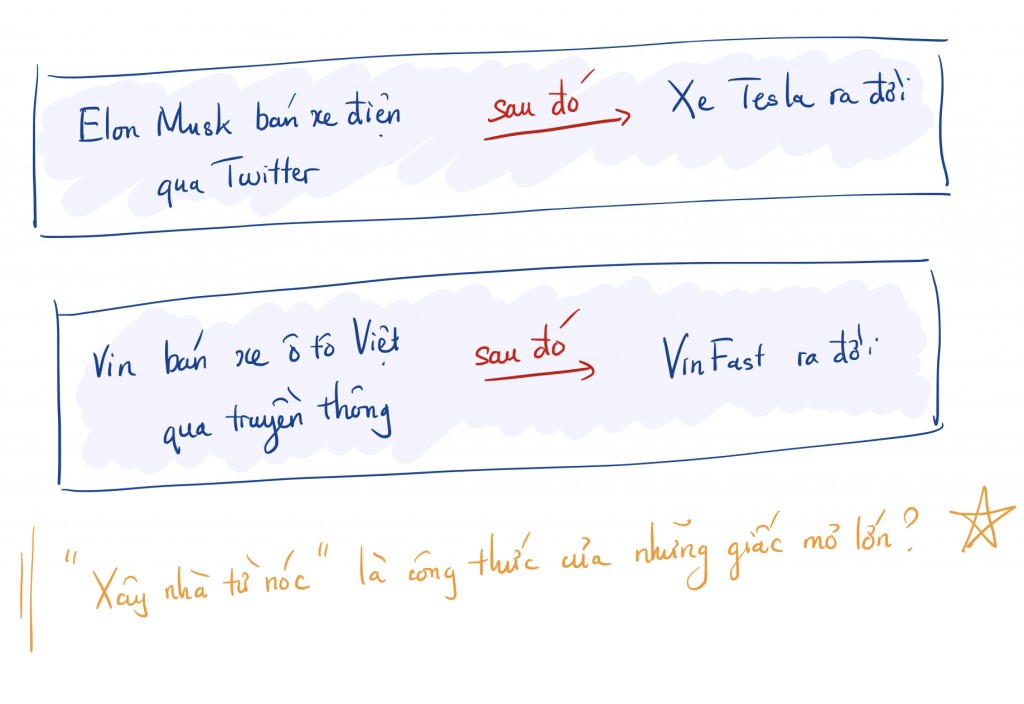 Elon Musk bán xe điện
qua Twitter
sau đó
Xe Tesla ra đời
Vin bán xe ô tô Việt
qua truyền thông
sau đó
VinFast ra đời
"Xây nhà từ nóc" là công thức của những giấc mơ lớn?